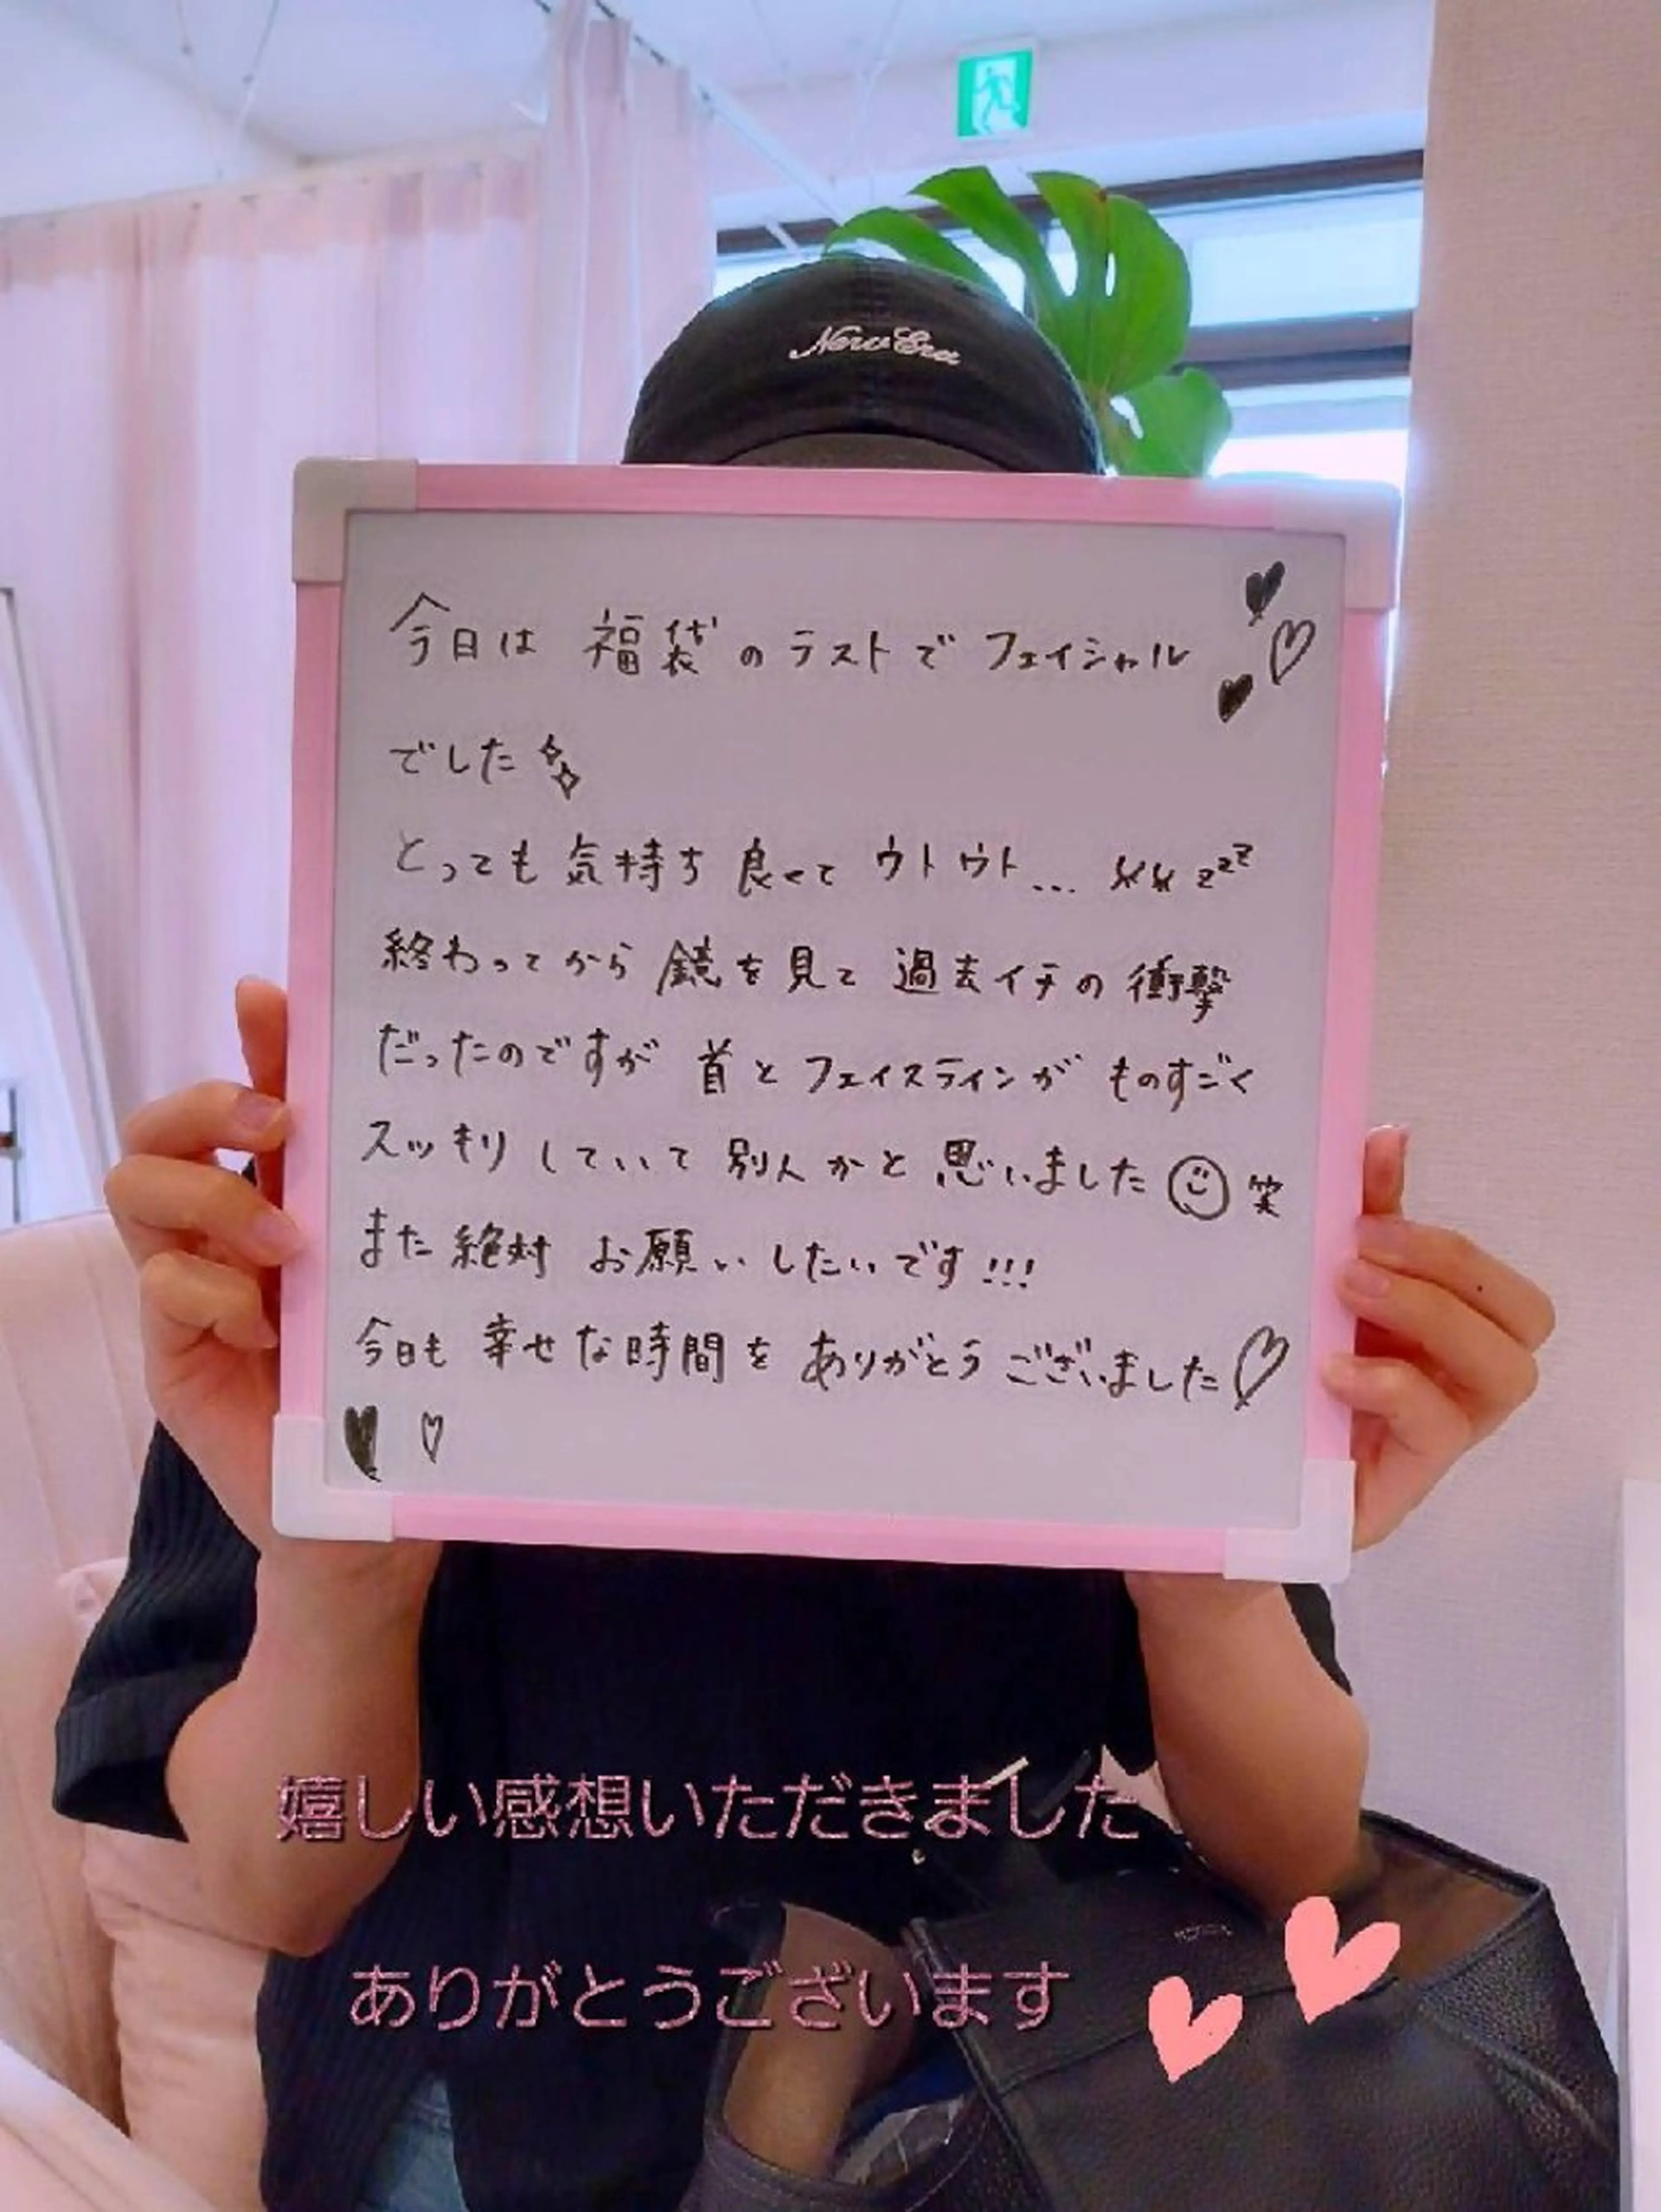 New Era
今日は 福袋のラストで フェイシャル
でした
とっても 気持ち 良くて ウトウト... zzz
終わってから 鏡を見て 過去イチの 衝撃
だったのですが 首と フェイスラインが ものすごく
スッキリ していて 別人かと 思いました 笑
また絶対 お願い したいです!!!
今日も 幸せな時間を ありがとうございました♡
嬉しい感想いただきました
ありがとうございます